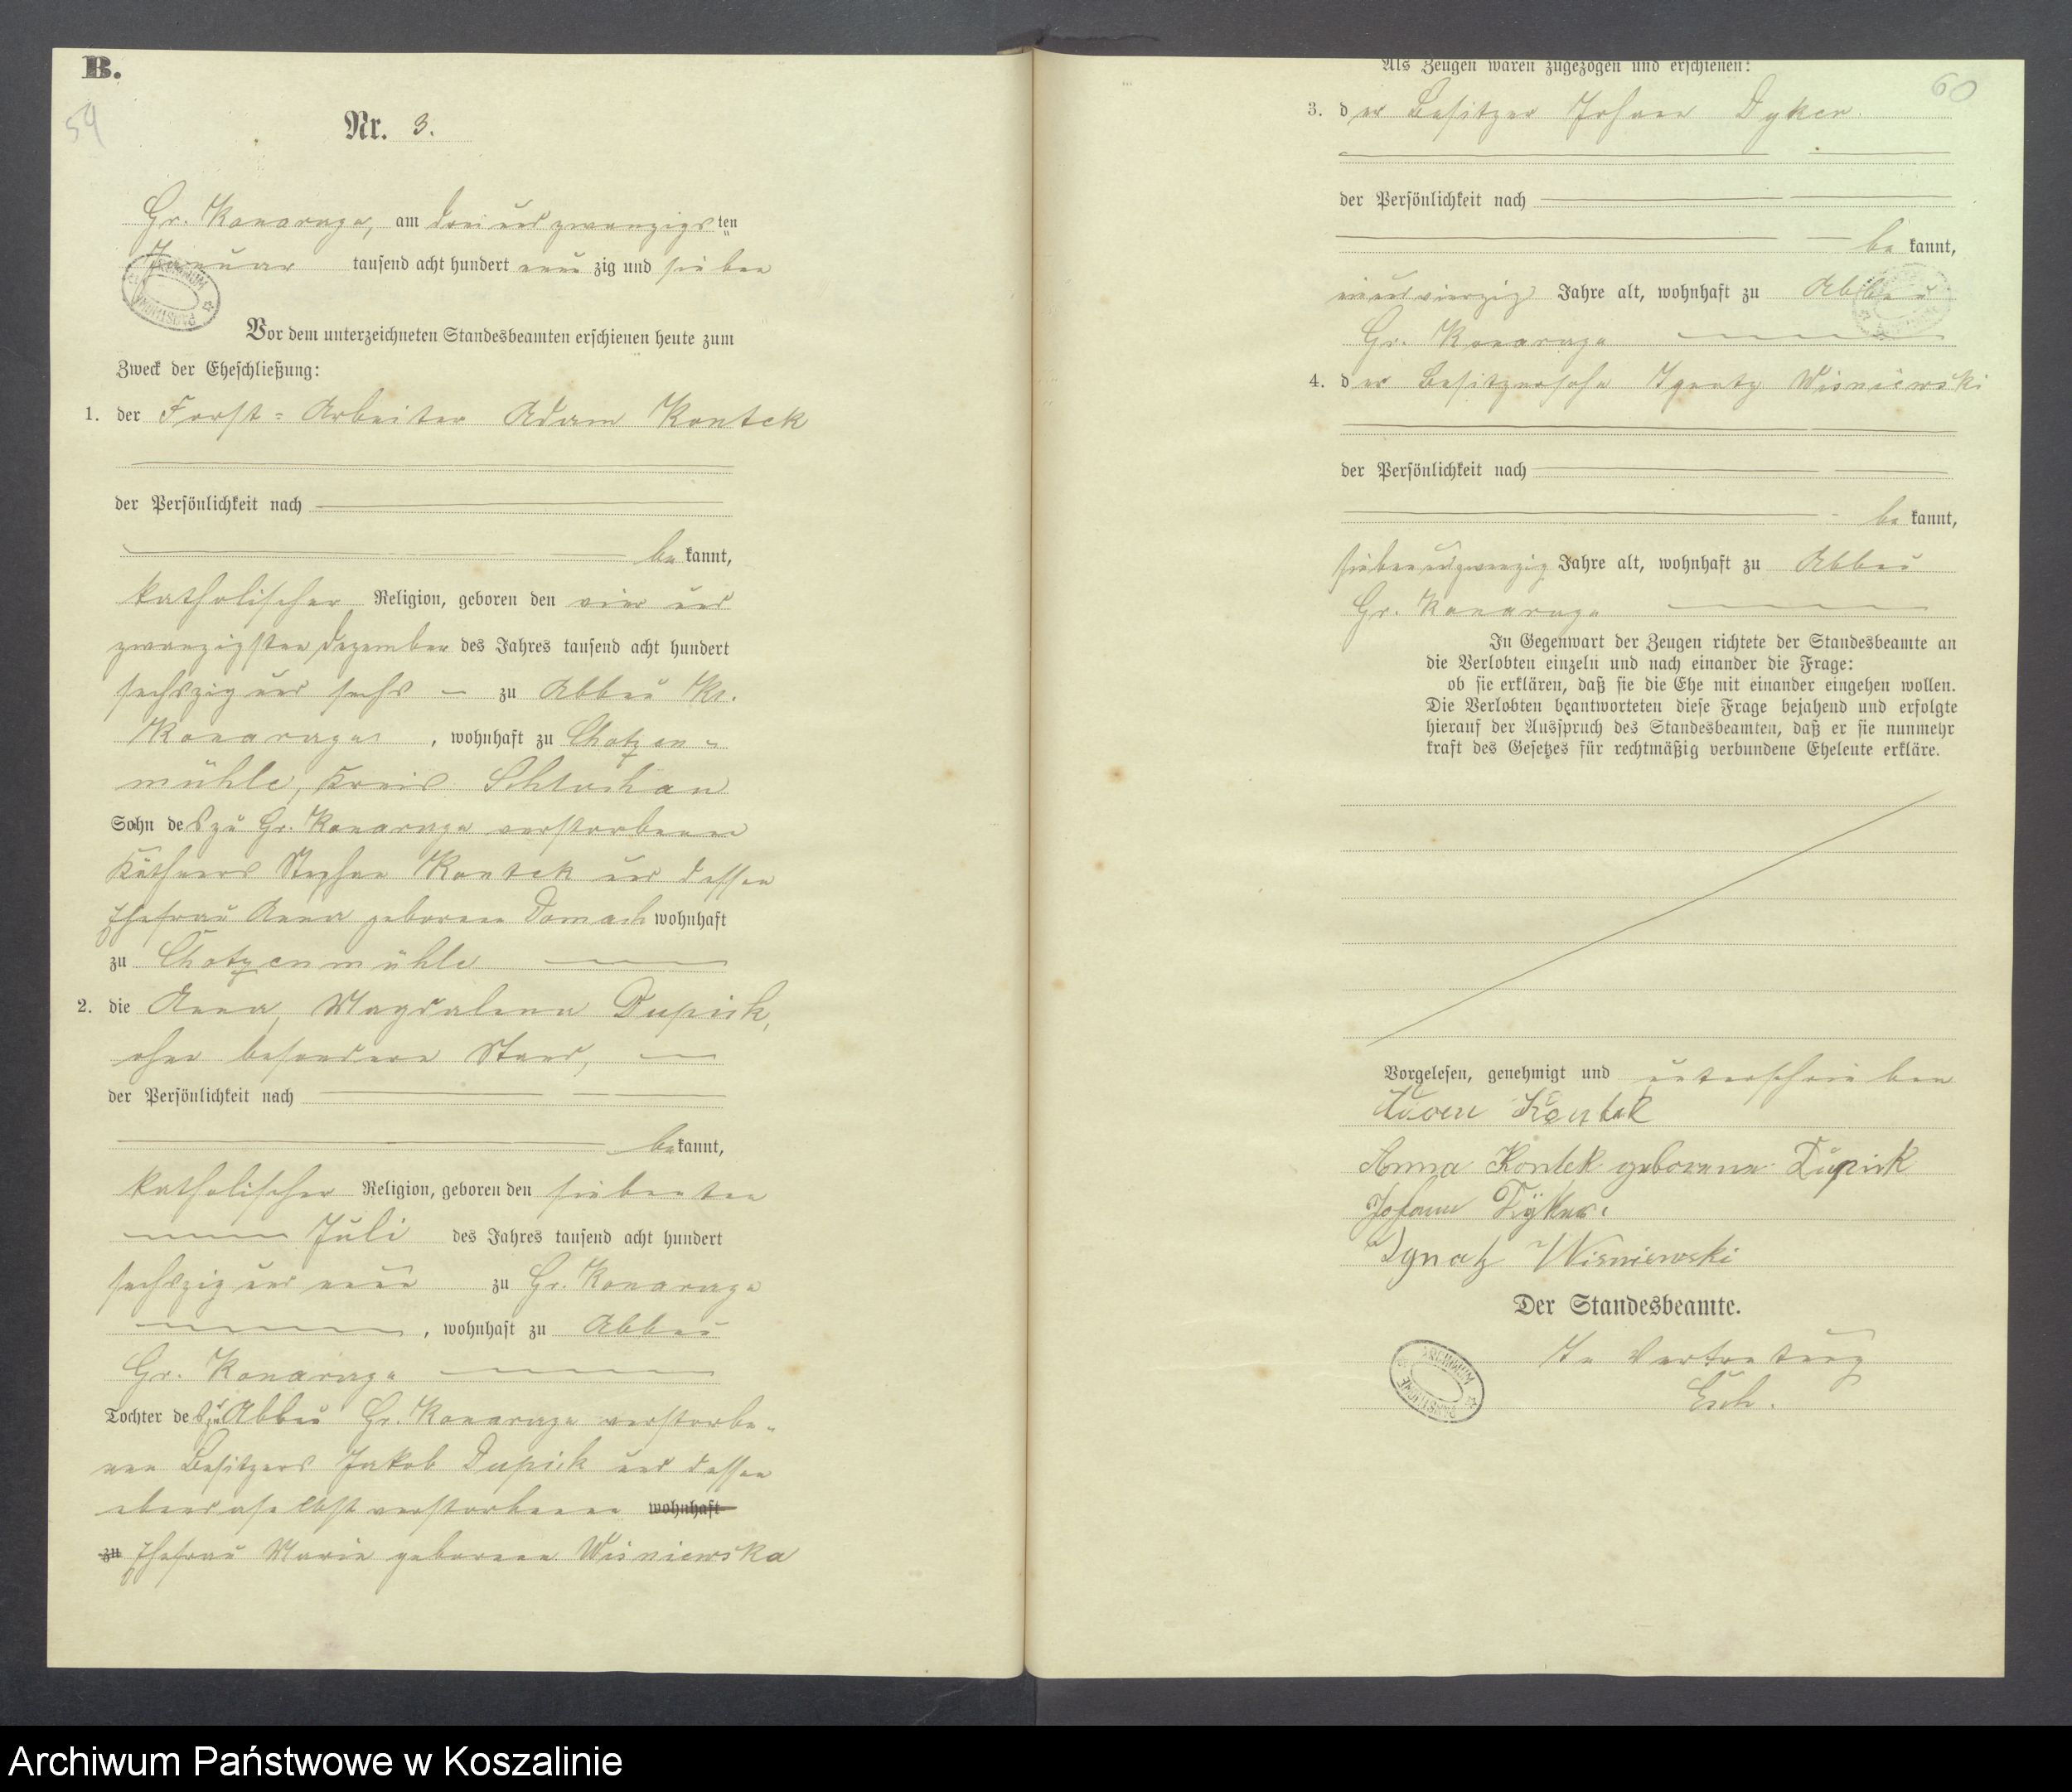 B.
59
Nr. 3.
Gr. Konarzyn, am drei und zwanzigsten
Januar tausend acht hundert neunzig und sieben
Vor dem unterzeichneten Standesbeamten erschienen heute zum
Zweck der Eheschließung:
1. der Forst-Arbeiter Adam Kontek
der Persönlichkeit nach
bekannt,
katholischer Religion, geboren den vier und
zwanzigsten Dezember des Jahres tausend acht hundert
sechszig und sechs zu Abbau Kl.
wohnhaft zu Chotzen-
mühle, Kreis Schlochau
Sohn des zu Gr. Konarzyn verstorbenen
Käthners Stephan Kontek und dessen
Ehefrau Anna geborene Domach wohnhaft
zu Chotzenmühle
2. die Anna Magdalena Dupick,
ohne besonderen Stand,
der Persönlichkeit nach
bekannt,
katholischer Religion, geboren den siebenten
Juli des Jahres tausend acht hundert
sechszig und neun zu Gr. Konarzyn
, wohnhaft zu Abbau
Gr. Konarzyn
Tochter des zu Abbau Gr. Konarzyn verstorbe-
nen Besitzers Jakob Dupick und dessen
ebendaselbst verstorbenen wohnhaft
zu Ehefrau Marie geborene Wisniewska
60
Als Zeugen waren zugezogen und erschienen:
3. der Besitzer Johann Dyker
der Persönlichkeit nach
bekannt,
Jahre alt, wohnhaft zu Abbau
Gr. Konarzyn
4. der Besitzersohn Ignatz Wisniewski
der Persönlichkeit nach
bekannt,
siebenundzwanzig Jahre alt, wohnhaft zu Abbau
Gr. Konarzyn
In Gegenwart der Zeugen richtete der Standesbeamte an
die Verlobten einzeln und nach einander die Frage:
ob sie erklären, daß sie die Ehe mit einander eingehen wollen.
Die Verlobten beantworteten diese Frage bejahend und erfolgte
hierauf der Ausspruch des Standesbeamten, daß er sie nunmehr
kraft des Gesetzes für rechtmäßig verbundene Eheleute erkläre.
Vorgelesen, genehmigt und unterschrieben
Adam Kontek
Anna Kontek geborene Dupick
Johann Dyker.
Ignatz Wisniewski
Der Standesbeamte.
In Vertretung
Archiwum Państwowe w Koszalinie